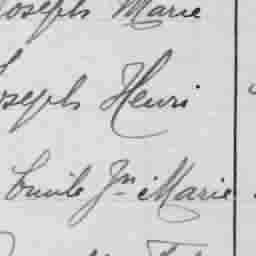 Joseph Marie
Joseph Henri
Emile Jn Marie